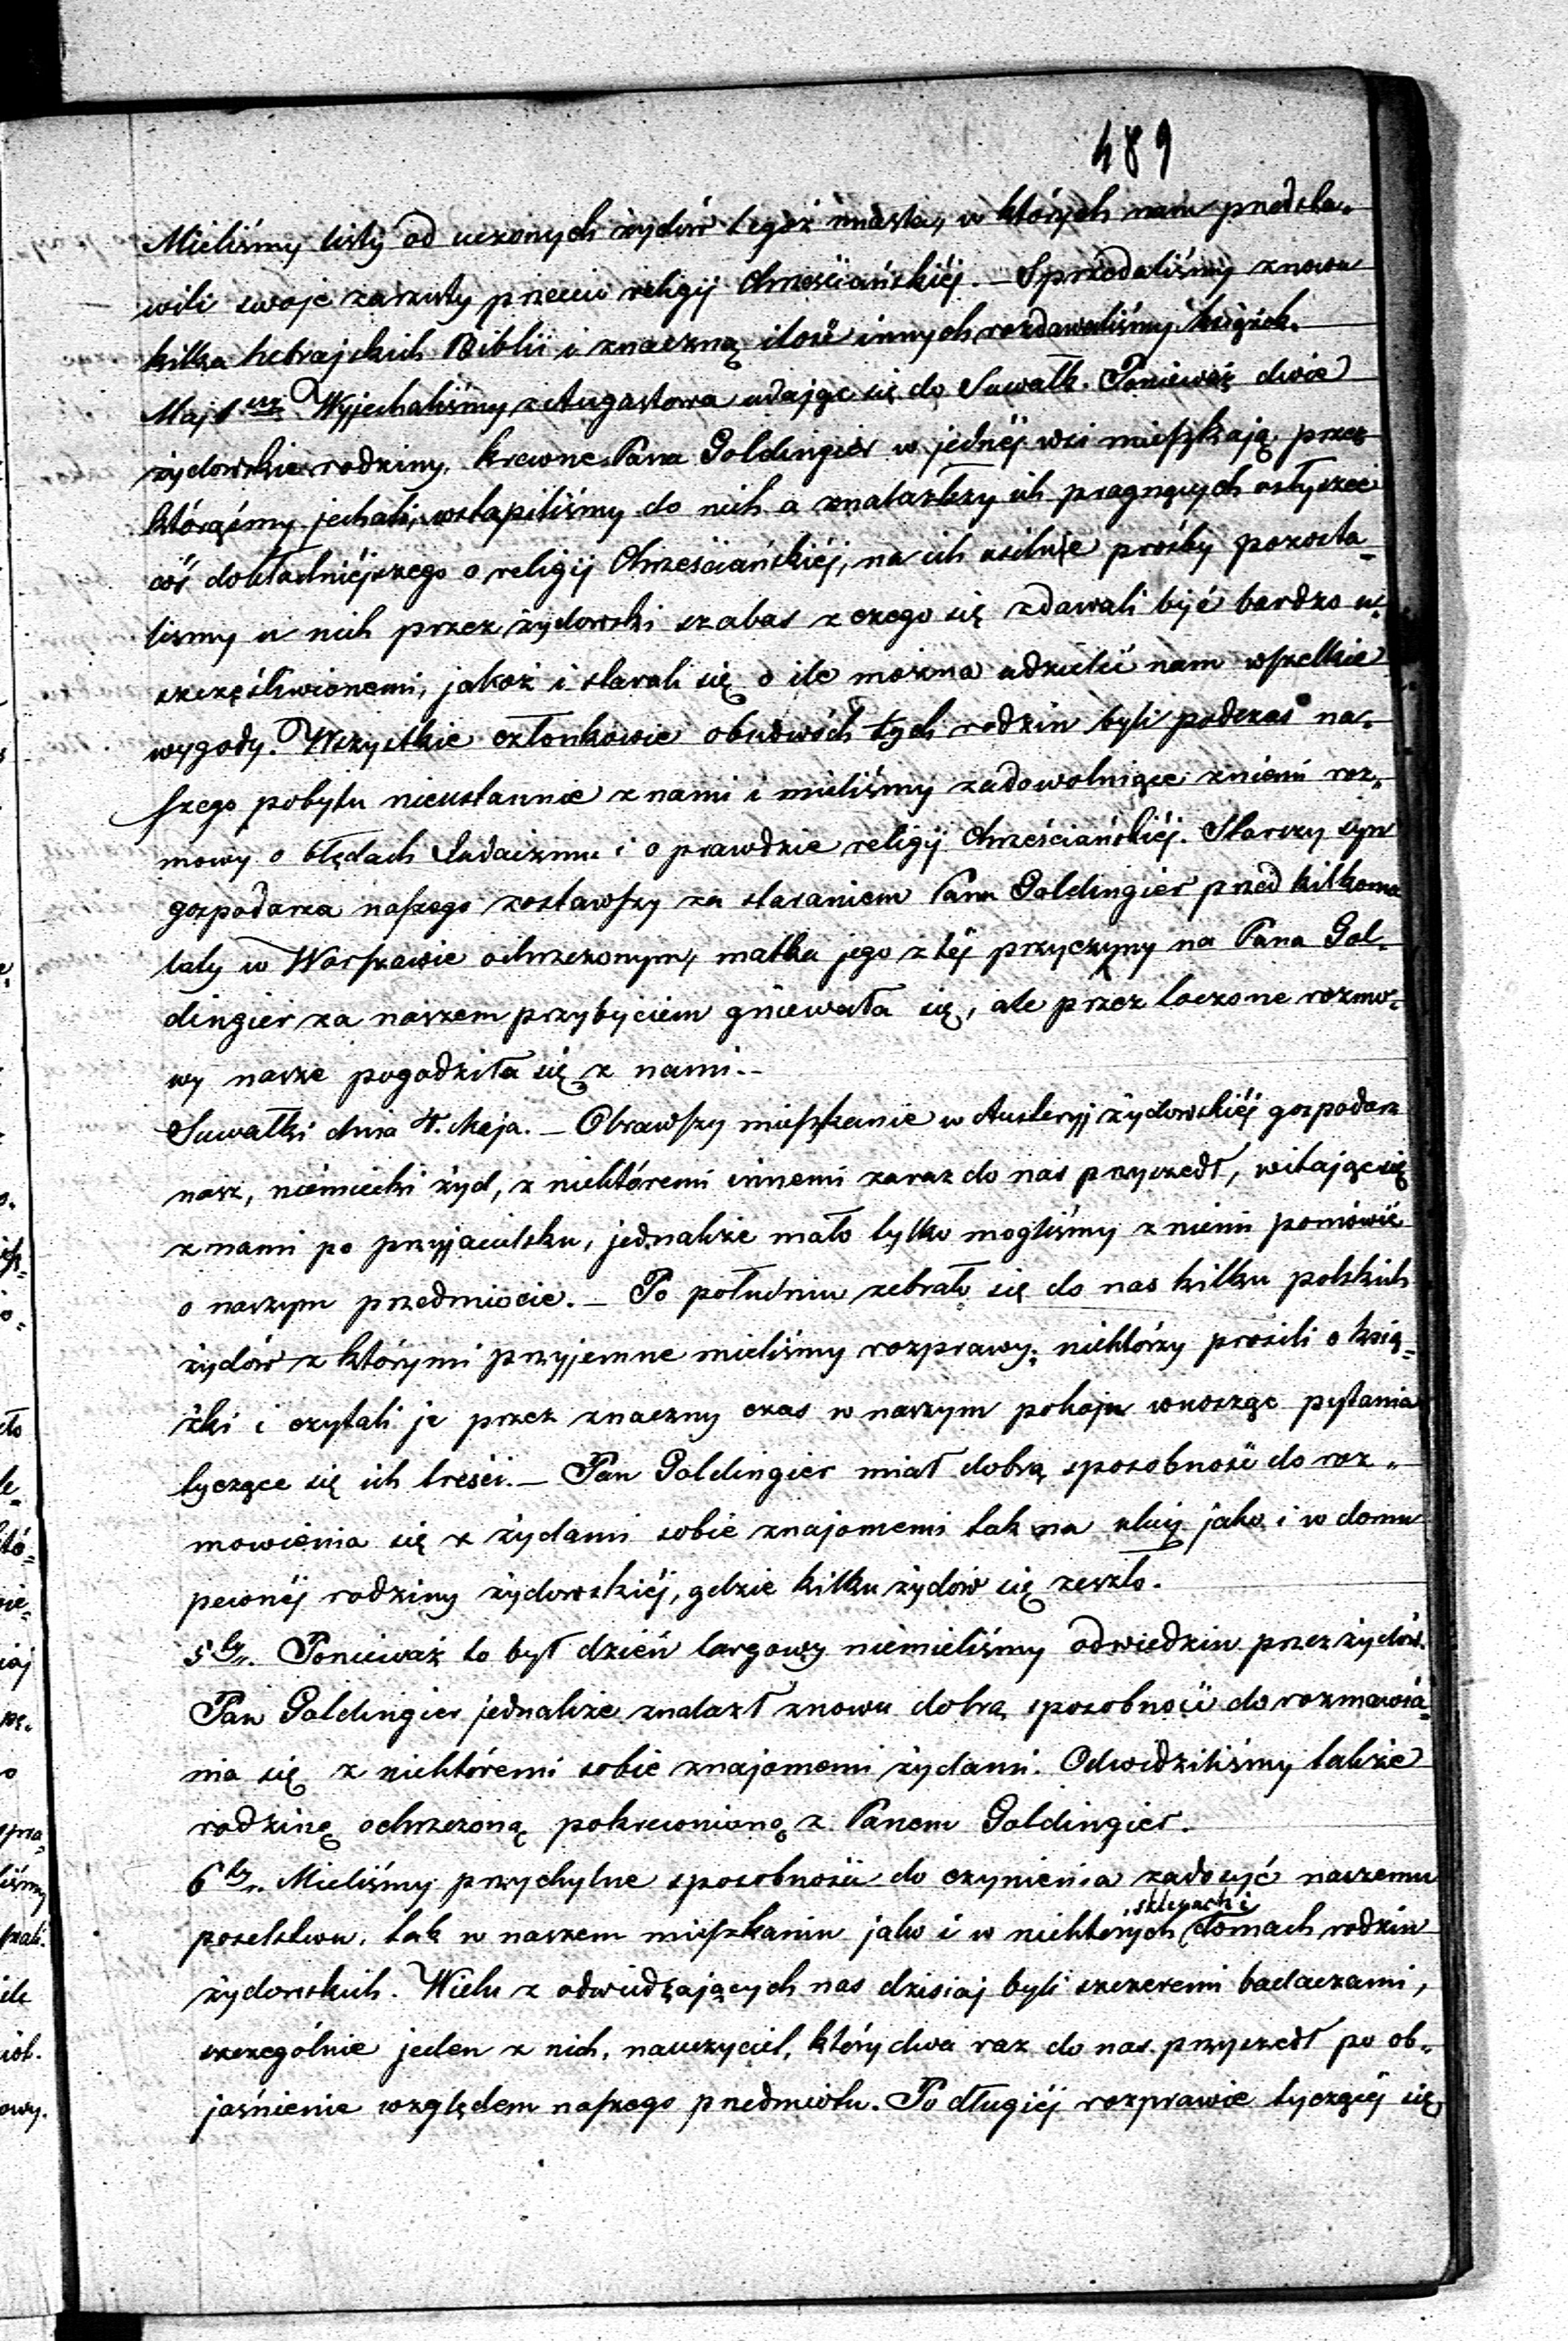 489
Mieliśmy listy od uczonych żydów tegoż miasta, w których nam przedsta„
wili swoje zarzuty przeciw religij Chrześciańskiéj. — Sprzedaliśmy znowu
kilka hebrajskich Biblii i znaczną ilość innych rozdawaliśmy książek.
Maj 1sze. Wyjechaliśmy z Augustowa udając się do Suwałk. Ponieważ dwie
żydowskie rodziny, krewne Pana Goldingier w jednéj wsi mieszkają, przez
którąśmy jechali, wstąpiliśmy do nich a znalazłszy ich pragnących usłyszeć
cóś dokładniéjszego o religij Chrześciańskiéj, na ich usilne prośby pozosta„
liśmy u nich przez żydowski szabas z czego się zdawali być bardzo u„
szczęśliwionemi, jakoż i starali się o ile można udzielić nam wszelkie
wygody. Wszystkie członkowie obudwóch tych rodzin byli podczas na„
szego pobytu nieustannie z nami i mieliśmy zadowolniące z niemi roz„
mowy o błędach Judaizmu i o prawdzie religij Chrześciańskiéj. Starszy syn
gospodarza naszego zostawszy za staraniem Pana Goldingier przed kilkoma
laty w Warszawie ochrzczonym, matka jego z téj przyczyny na Pana Gol„
dingier za naszem przybyciem gniewała się, ale przez toczone rozmo„
wy nasze pogodziła się z nami. –
Suwałki dnia 4. Maja. — Obrawszy mieszkanie w Austeryj żydowskiéj gospodarz
nasz, niémiecki żyd, z niektóremi innemi zaraz do nas przyszedł, witając się
z nami po przyjacielsku, jednakże mało tylko mogliśmy z niemi pomówić
o naszym przedmiocie. — Po południu zebrało się do nas kilku polskich
żydów z którymi przyjemne mieliśmy rozprawy; niektórzy prosili o ksią„
żki i czytali je przez znaczny czas w naszym pokoju wnosząc pytania
tyczące się ich treści. — Pan Goldingier miał dobrą sposobność do roz„
mowienia się z żydami sobie znajomemi tak na ulicy jako i w domu
pewnéj rodziny żydowskiéj, gdzie kilku żydów się zeszło.
5go. Ponieważ to był dzień targowy niemieliśmy odwiedzin przez żydów.
Pan Goldingier jednakże znalazł znowu dobrą sposobność do rozmawia„
nia się z niektóremi sobie znajomemi żydami. Odwiedziliśmy także
rodzinę ochrzczoną pokrewnioną z Panem Goldingier.
6go. Mieliśmy przychylne sposobności do czynienia zadosyć naszemu
sklepach i
poselstwu, tak w naszem mieszkaniu jako i w niektórych domach rodzin
żydowskich. Wielu z odwiedzających nas dzisiaj byli szczeremi badaczami,
szczególnie jeden z nich, nauczyciel, który dwa raz do nas przyszedł po ob„
jaśnienie względem naszego przedmiotu. Po długiéj rozprawie tyczącéj się